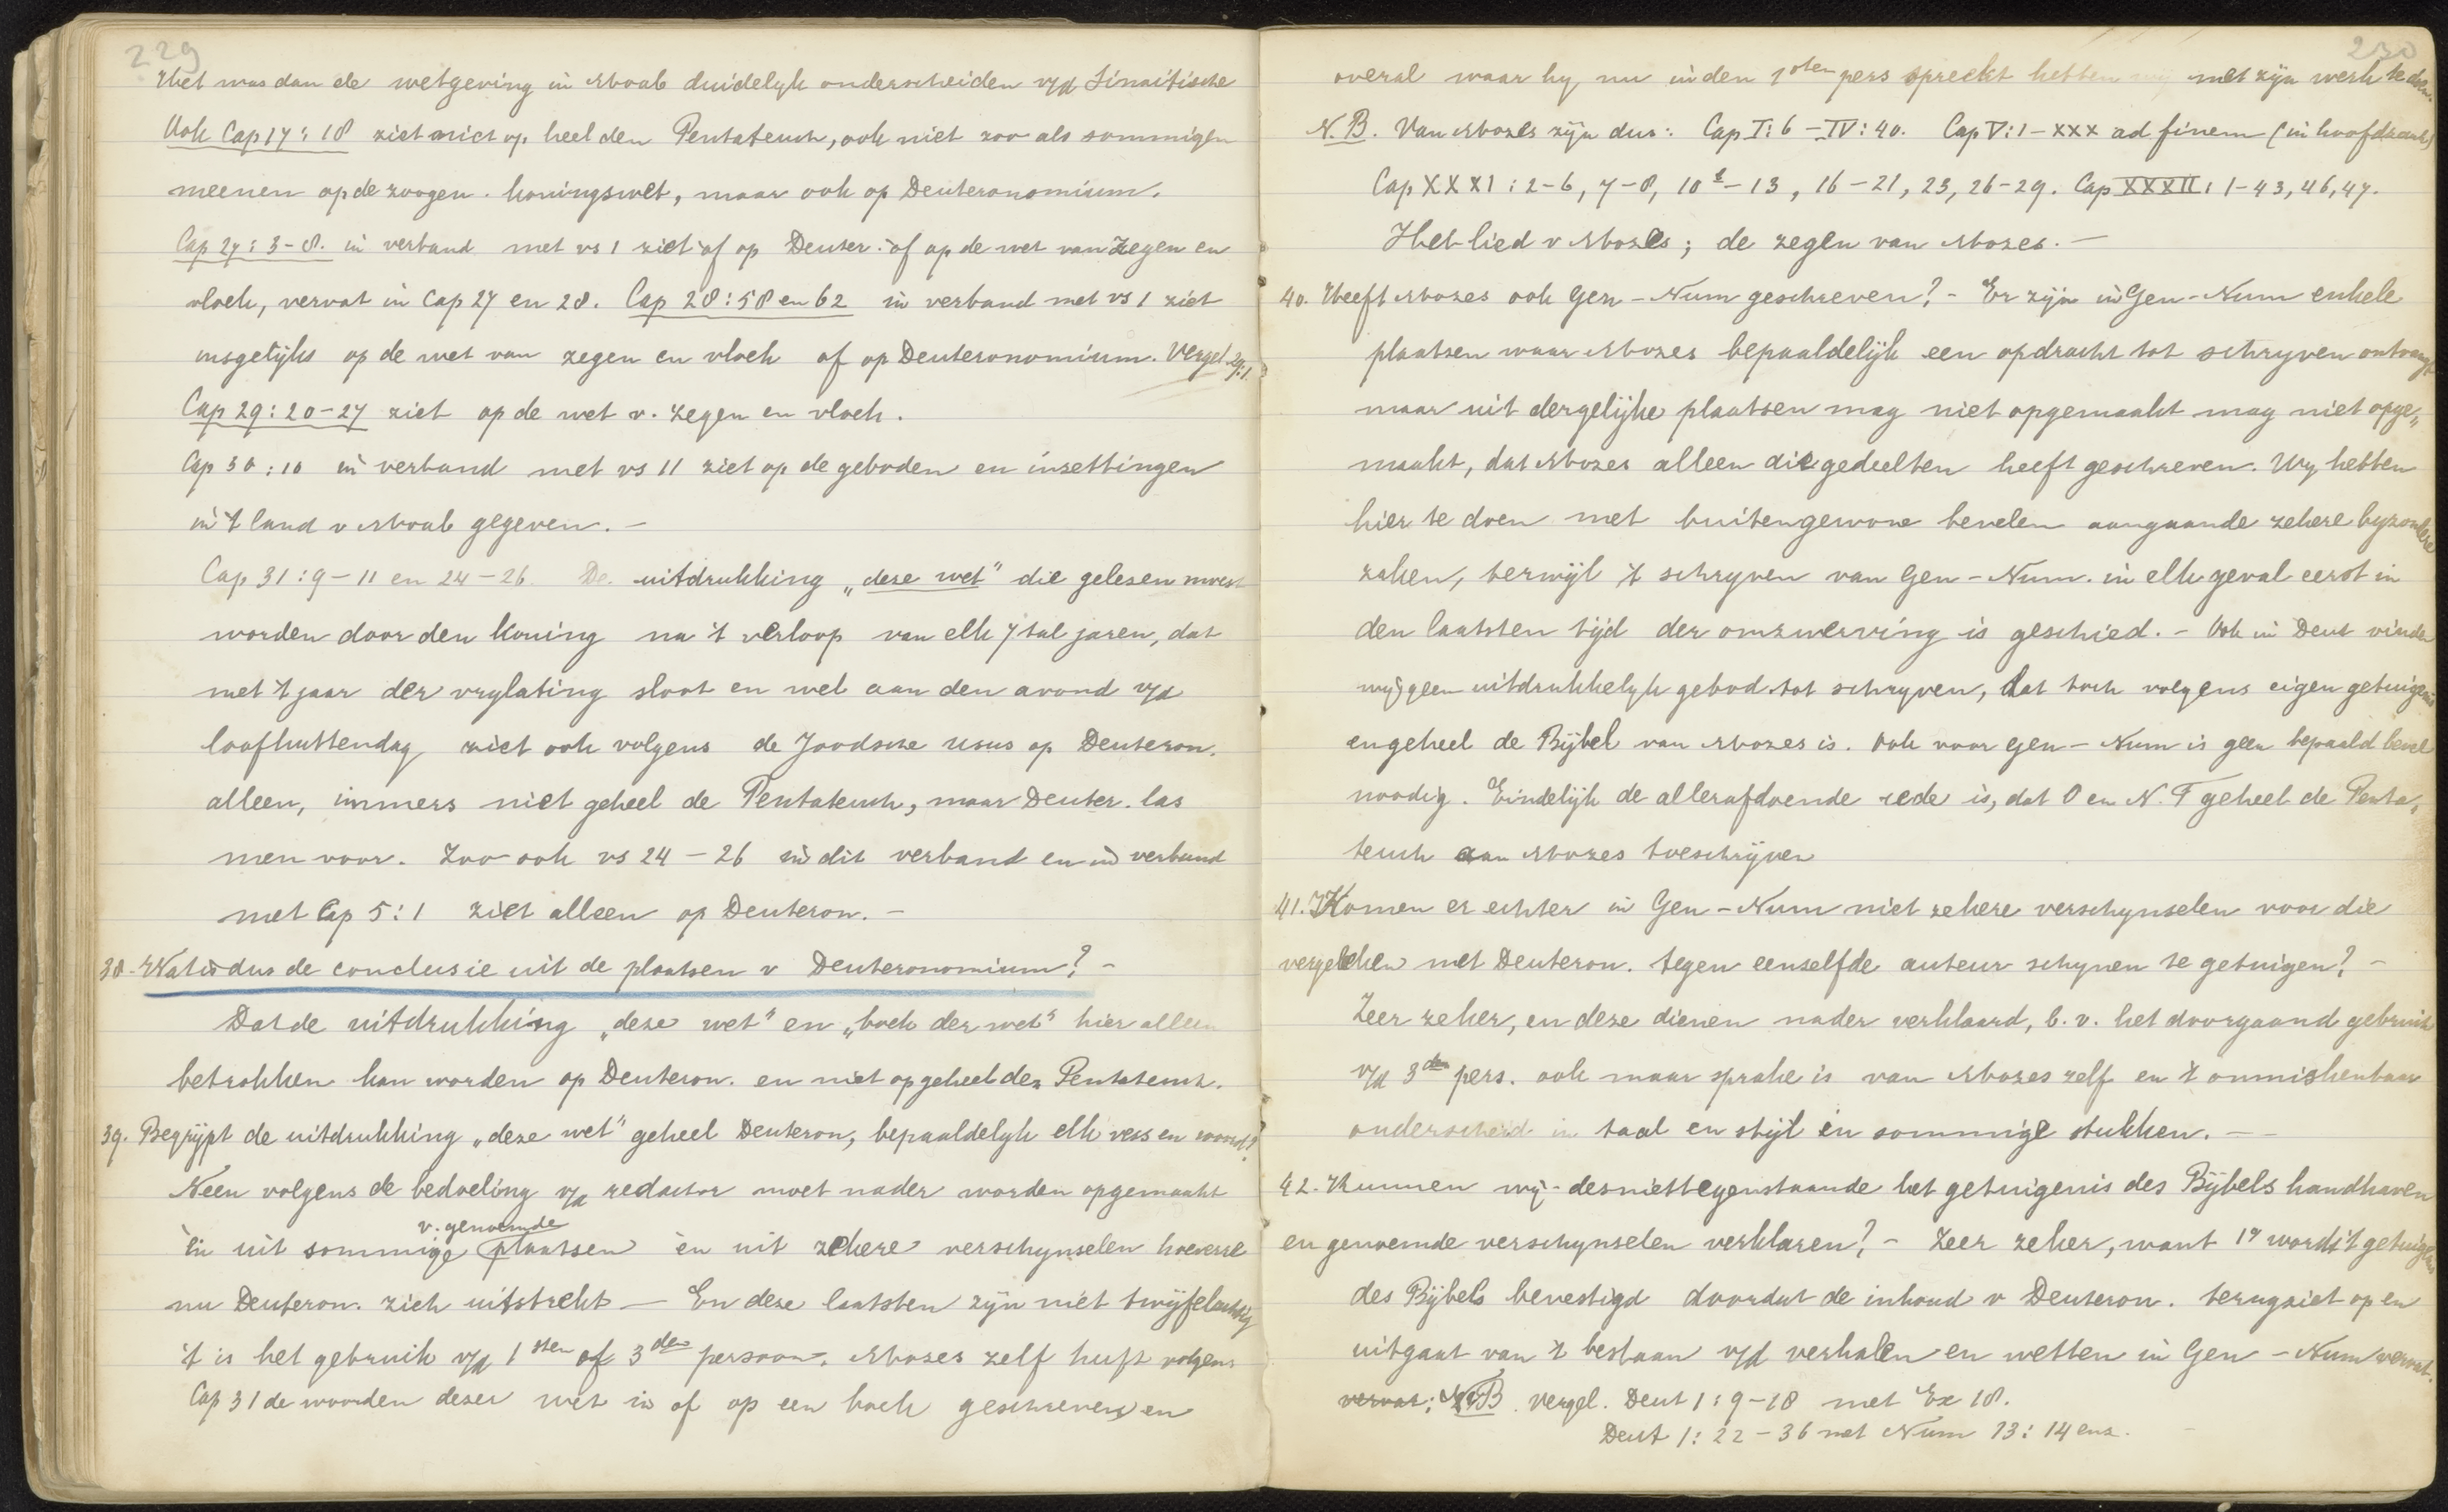 229
Het was dan de wetgeving in Moab duidelyk onderscheiden v/d Sinaitische
Ook Cap 17:18 ziet niet op heel den Pentateuch, ook niet zoo als sommigen
meenen op de zoogen. koningswet, maar ook op Deuteronomium.
Cap 27:3-8. in verband met vs 1 ziet òf op Deuter. òf op de wet van zegen en
vloek, vervat in Cap 27 en 28. Cap 28:58 en 62 in verband met vs 1 ziet
insgelijks op de wet van zegen en vloek of op Deuteronomium. Vergel 29:1.
Cap 29:20-27 ziet op de wet v. zegen en vloek.
Cap 30:10 in verband met vs 11 ziet op de geboden en inzettingen
in 't land v Moab gegeven. -
Cap 31:9-11 en 24-26. De uitdrukking „deze wet" die gelesen moest
worden door den koning na 't verloop van elk 7tal jaren, dat
met 't jaar der vrylating sloot en wel aan den avond v/d
loofhuttendag ziet ook volgens de Joodsche usus op Deuteron.
alleen, immers niet geheel de Pentateuch, maar Deuter. las
men voor. Zoo ook vs 24-26 in dit verband en in verband
met Cap 5:1 ziet alleen op Deuteron. -
38. Wat is dus de conclusie uit de plaatsen v Deuteronomium? -
Dat de uitdrukking „deze wet" en „boek der wet" hier alleen
betrokken kan worden op Deuteron. en niet op geheel den Pentateuch.
39. Begrijpt de uitdrukking „deze wet" geheel Deuteron, bepaaldelyk elk vers en woord?
Neen volgens de bedoeling v/d redactor moet nader worden opgemaakt
v. genoemde
èn uit sommige plaatsen èn uit zekere verschynselen hoeverre
nu Deuteron. zich uitstrekt - En deze laatsten zijn niet twijfelachtig
't is het gebruik v/d 1sten of 3den persoon. Mozes zelf heeft volgens
Cap 31 de woorden dezer wet in of op een boek geschreven en
230
overal waar hy nu in den 1sten pers spreekt hebben wij met zijn werk te doen.
N.B. Van Mozes zijn dus: Cap I:6 - IV:40. Cap V:1 - XXX ad finem (in hoofdzaak)
Cap XXXI:2-6, 7-8, 10-13, 16-21, 23, 26-29. Cap XXXII:1-43, 46, 47.
Het lied v Mozes; de zegen van Mozes. -
40. Heeft Mozes ook Gen - Num geschreven? - Er zijn in Gen - Num enkele
plaatsen waar Mozes bepaaldelijk een opdracht tot schryven ontvangt
maar uit dergelijke plaatsen mag niet opgemaakt mag niet opge„
maakt, dat Mozes alleen die gedeelten heeft geschreven. Wy hebben
hier te doen met buitengewone bevelen aangaande zekere byzondere
zaken, terwijl 't schryven van Gen - Num. in elk geval eerst in
den laatsten tijd der omzwerving is geschied. - Ook in Deut vinden
wij geen uitdrukkelyk gebod tot schryven, dat toch volgens eigen getuigenis
en geheel de Bijbel van Mozes is. Ook voor Gen - Num is geen bepaald bevel
noodig. Eindelijk de allerafdoende rede is, dat O en N.T geheel de Penta„
teuch aan Mozes toeschrijven
41. Komen er echter in Gen - Num niet zekere verschynselen voor die
vergeleken met Deuteron. tegen eenzelfde auteur schynen te getuigen? -
Zeer zeker, en deze dienen nader verklaard, b.v. het doorgaand gebruik
v/d 3den pers. ook maar sprake is van Mozes zelf en 't onmiskenbaar
onderscheid in taal en stijl in sommige stukken. -
42. Kunnen wij desniettegenstaande het getuigenis des Bijbels handhaven
en genoemde verschynselen verklaren? - Zeer zeker, want 1o wordt 't getuigenis
des Bijbels bevestigd doordat de inhoud v Deuteron. terugziet op en
uitgaat van 't bestaan v/d verhalen en wetten in Gen - Num vervat.
vervat; NB. Vergel. Deut 1:9-18 met Ex 18.
Deut 1:22-36 met Num 13:14 enz.